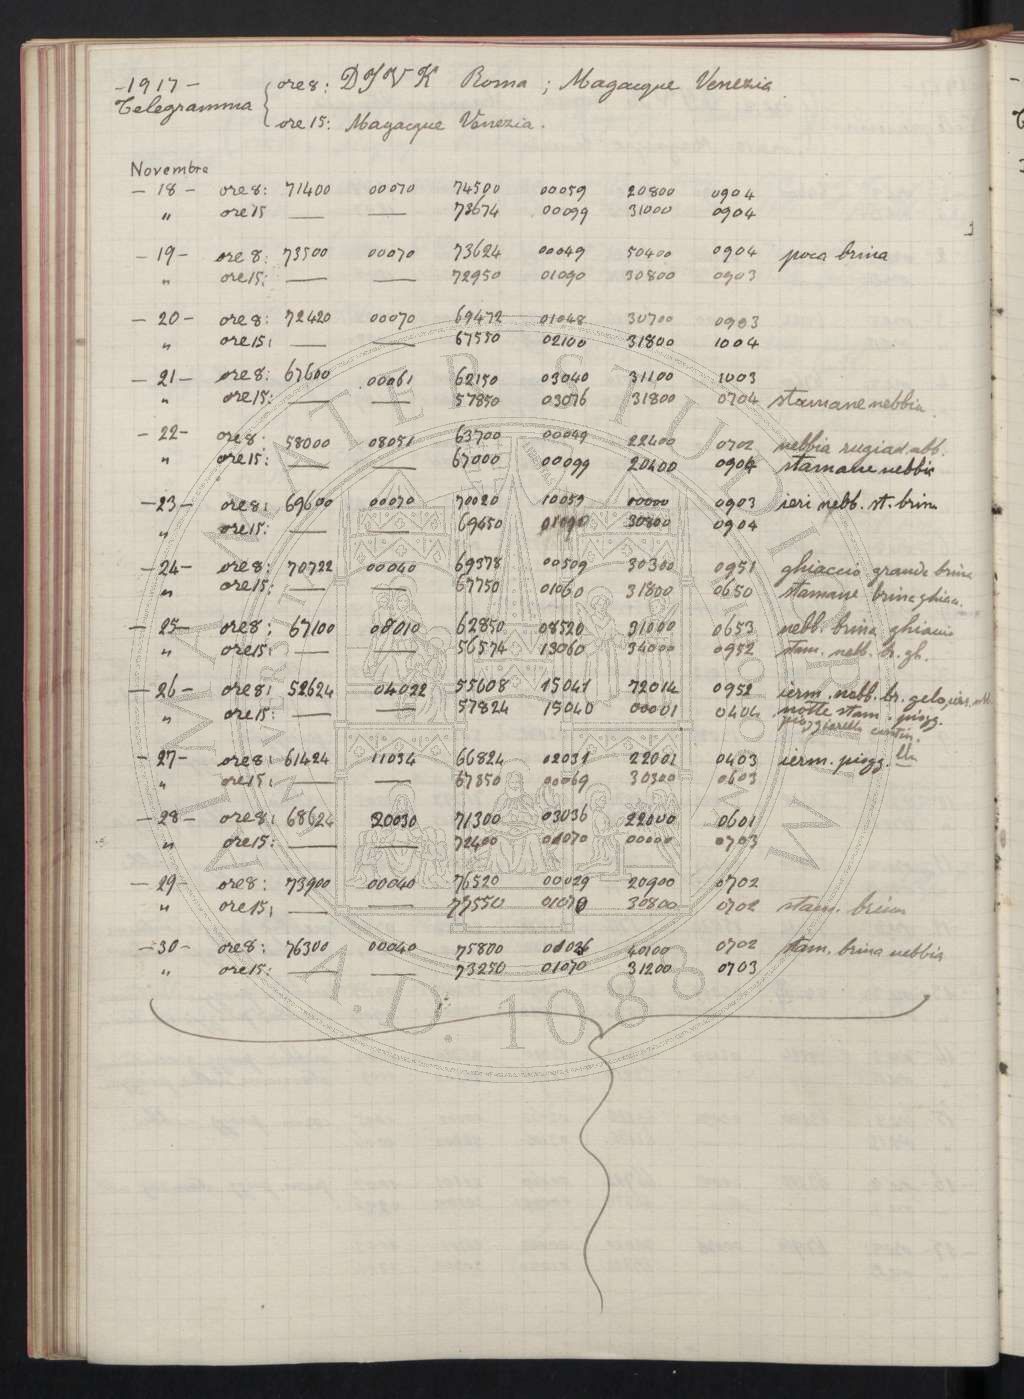 -1917-
Telegramma
ore 8: DIVK Roma ; Magacque Venezia
ore 15: Magacque Venezia.
Novembre
-18- ore 8: 71400 00070 74500 00059 20800 0904
" ore 15 — — 73674 00099 31000 0904
-19- ore 8: 73500 00070 73624 00049 50400 0904 poca brina
" ore 15: — — 72950 01090 30800 0903
-20- ore 8: 72420 00070 69472 01048 30700 0903
" ore 15: — — 67550 02100 31800 1004
-21- ore 8: 67600 00061 62150 03040 31100 1003
" ore 15: — — 57850 03076 31800 0704 stamane nebbia
-22- ore 8: 58000 08051 63700 00049 22400 0702 nebbia rugiad. abb.
" ore 15: — — 67000 00099 20400 0904 stamane nebbia
-23- ore 8: 69600 00070 70020 10059 00000 0903 ieri nebb. st. brina
" ore 15: — — 69650 01090 30800 0904
-24- ore 8: 70722 00040 69378 00509 30300 0951 ghiaccio grande brina
" ore 15: — — 67750 01060 31800 0650 stamane brina ghiacc.
-25- ore 8: 67100 08010 62850 08520 31000 0653 nebb. brina ghiaccio
" ore 15: — — 56574 13060 34000 0952 stam. nebb. br. gh.
-26- ore 8: 52624 04022 55608 15041 72014 0952 ierm. nebb. br. gelo,
" ore 15: — — 57824 15040 00001 0404 notte stam. piogg.
pioggiarella contin.
-27- ore 8: 61424 11034 66824 02031 22001 0403 ierm. piogg.lla
" ore 15: — — 67850 00069 30300 0603
-28- ore 8: 68624 20030 71300 03036 22000 0601
" ore 15: — — 72400 01070 00000 0703
-29- ore 8: 73900 00040 76520 00029 20900 0702
" ore 15: — — 77550 01070 30800 0702 stam. brina
-30- ore 8: 76300 00040 75800 01036 40100 0702 stam. brina nebbia
" ore 15: — — 73250 01070 31200 0703
ALMA MATER STUDIORUM
A.D. 1088